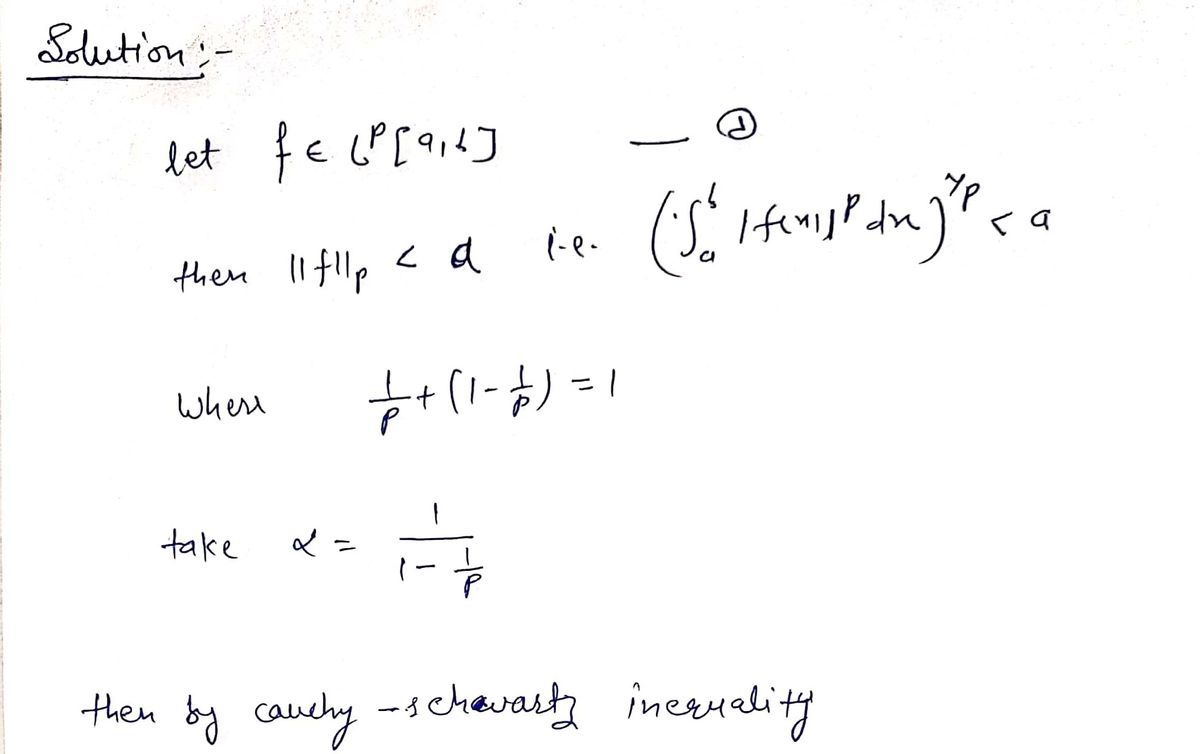 Solution :-
let f ∈ L^p [a,b] — ①
then ||f||_p < d i.e. (∫_a^b |f(x)|^p dx)^{1/p} < a
where 1/p + (1 - 1/p) = 1
take α = 1/(1 - 1/p)
then by cauchy - schawartz inequality